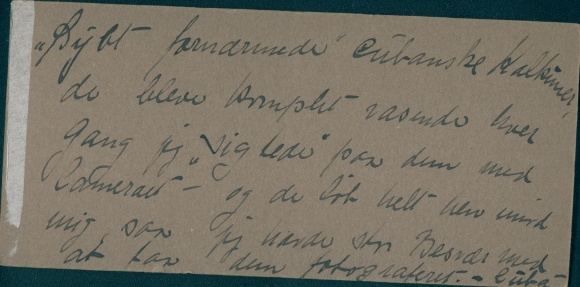 "Dybt fornærmede" cubanske Kalkuner,
de bleve komplet rasende hver
Gang jeg "sigtede" paa dem med
Cameraet - og de løb helt hen imod
mig saa jeg havde stor Besvær med
at faa dem fotograferet. - Cuba